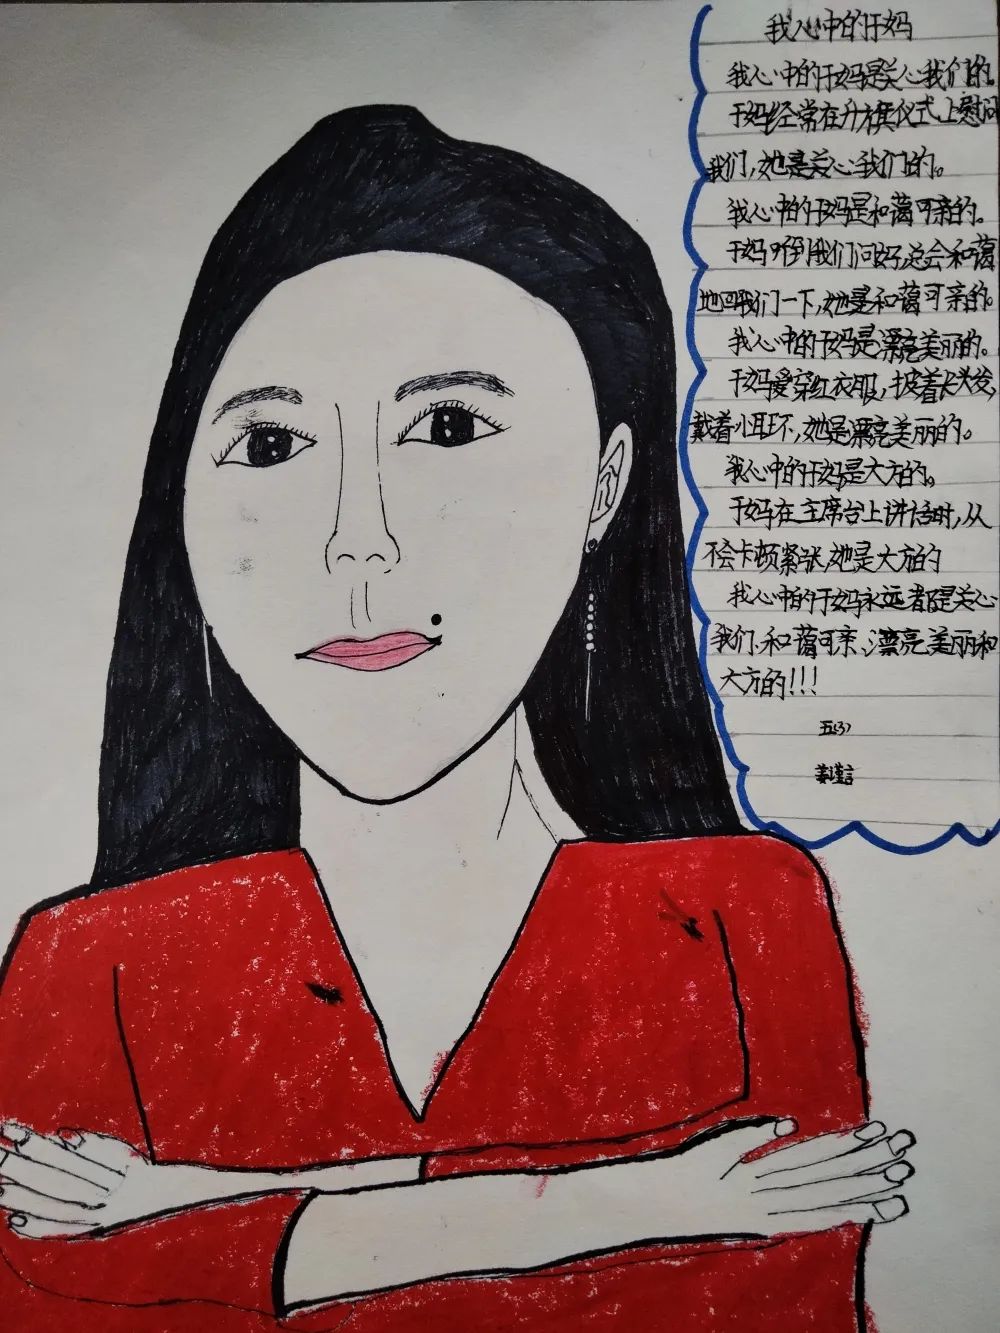 我心中的于妈
我心中的于妈是关心我们的。
于妈经常在升旗仪式上慰问
我们，她是关心我们的。
我心中的于妈是和蔼可亲的。
于妈听到我们问好总会和蔼
地回我们一下，她是和蔼可亲的。
我心中的于妈是漂亮美丽的。
于妈爱穿红衣服，披着长头发，
戴着小耳环，她是漂亮美丽的。
我心中的于妈是大方的。
于妈在主席台上讲话时，从
不会卡顿紧张，她是大方的
我心中的于妈永远都是关心
我们、和蔼可亲、漂亮美丽和
大方的！！！
五（3）
姜谨言